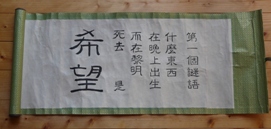 第一個謎語
什麼東西
在晚上出生
而在黎明
死去 是
希望